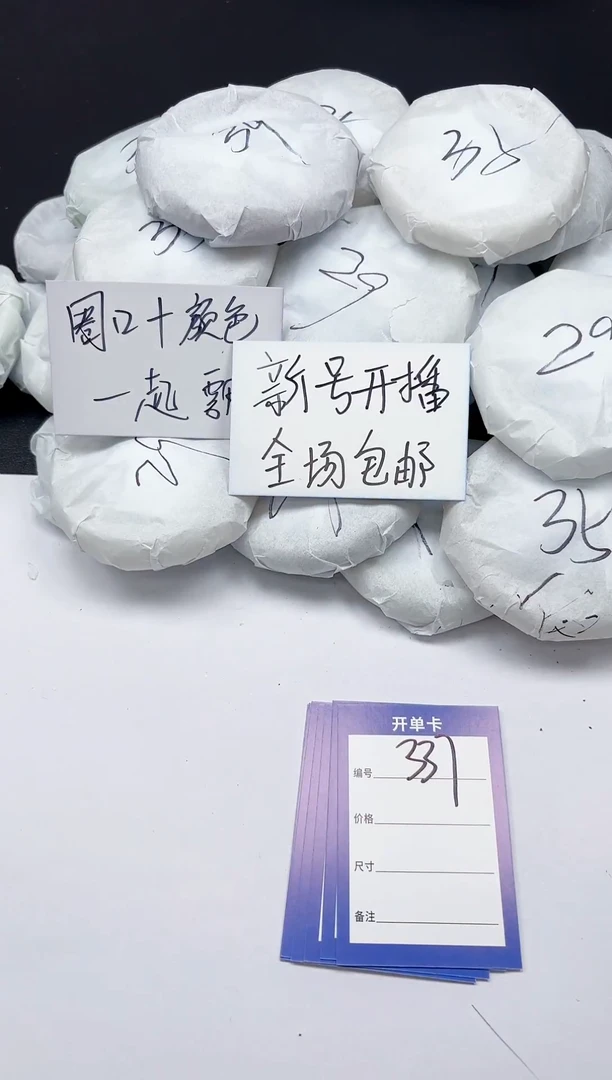 38
29
29
35
圈口十颜色
一起
新号开播
全场包邮
开单卡
编号 337
价格
尺寸
备注